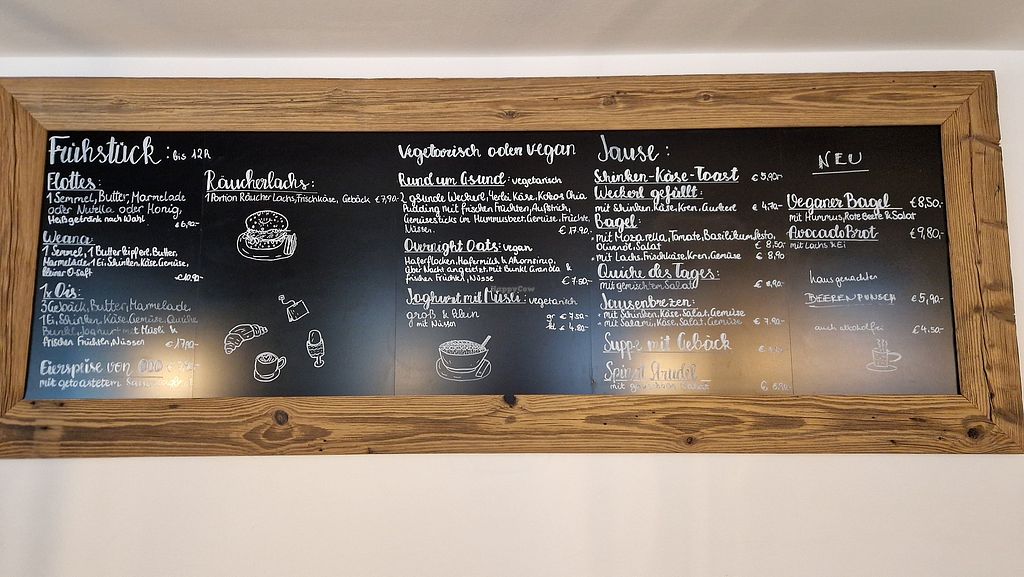 Frühstück : bis 12h
Flottes:
1 Semmel, Butter, Marmelade
oder Nutella oder Honig,
Heißgetränk nach Wahl
€ 6,90-
Weana:
1 Semmel, 1 Butterkipferl, Butter,
Marmelade, 1 Ei, Schinken, Käse, Gemüse,
kleiner O-Saft
1x Ois:
3 Gebäck, Butter, Marmelade,
1 Ei, Schinken, Käse, Gemüse, Quiche
Joghurt mit Müsli &
frischen Früchten, Nüssen
€ 17,90-
Eierspeise von
mit getoastetem
Räucherlachs:
1 Portion Räucher Lachs, Frischkäse, Gebäck € 7,90-
Vegetarisch oder vegan
Rund um Gsund: vegetarisch
2 gsunde Weckerl, Kräuter Käse, Kokos Chia
Pudding mit frischen Früchten, Aufstrich,
Gemüsesticks im Hummusbeet, Gemüse, Früchte,
Nüssen.
€ 17.90-
Overnight Oats: vegan
Haferflocken, Hafermilch & Ahornsirup,
über Nacht angesetzt, mit Granola &
frischen Früchten, Nüsse
Joghurt mit Müsli: vegetarisch
groß & klein
mit Nüssen
gr € 7.50.-
kl € 4.80-
Jause:
Schinken-Käse-Toast € 5,90-
Weckerl gefüllt:
mit Schinken, Käse, Kren, Gurkerl € 4.70-
Bagel:
• mit Mozarella, Tomate, Basilikumpesto,
Olivenöl, Salat € 8,50-
• mit Lachs, Frischkäse, Kren, Gemüse € 8,90
Quiche des Tages:
mit gemischten Salat € 6,90-
Jausenbrezen:
• mit Schinken, Käse, Salat, Gemüse
• mit Salami, Käse, Salat, Gemüse € 7,90-
Suppe mit Gebäck
Spinat Strudel
NEU
Veganer Bagel €8,50,-
mit Hummus, Rote Beete & Salat
Avocado Brot €9,80,-
mit Lachs & Ei
hausgemachter
BEERENPUNSCH €5,90,-
auch alkoholfrei €4.50,-
HappyCow